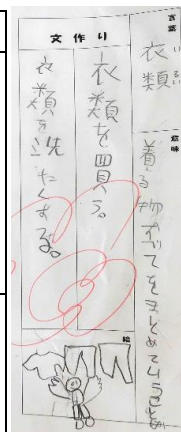 言葉
衣類
いるい
意味
着る物すべてをまとめていうことば
文作り
衣類を買う。
衣類を洗たくする。
絵